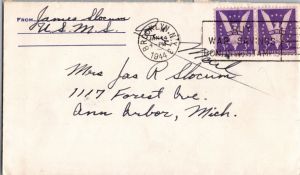 FROM James Slocum
U.S.M.S.
BROOKLYN, N.Y.
1944
WAR
Mail
Mrs Jas R Slocum
1117 Forest Ave.
Ann Arbor, Mich.